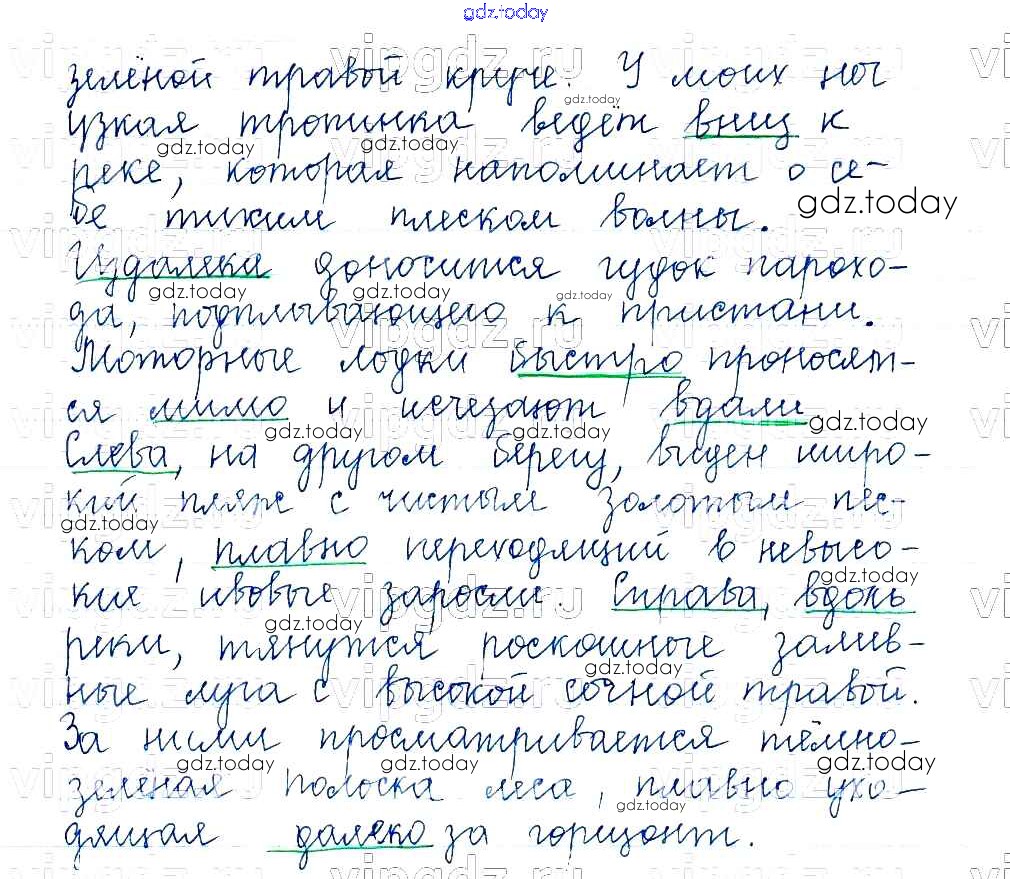 gdz.today
зелёной травой круче. У моих ног
узкая тропинка ведёт вниз к
реке, которая напоминает о се-
бе тихим плеском волны.
Издалека доносится гудок парохо-
да, подплывающего к пристани.
Моторные лодки быстро проносят-
ся мимо и исчезают вдали
Слева, на другом берегу, виден широ-
кий пляж с чистым золотым пес-
ком, плавно переходящий в невысо-
кие ивовые заросли. Справа, вдоль
реки, тянутся роскошные залив-
ные луга с высокой сочной травой.
За ними просматривается тёмно-
зелёная полоска леса, плавно ухо-
дящая далеко за горизонт.